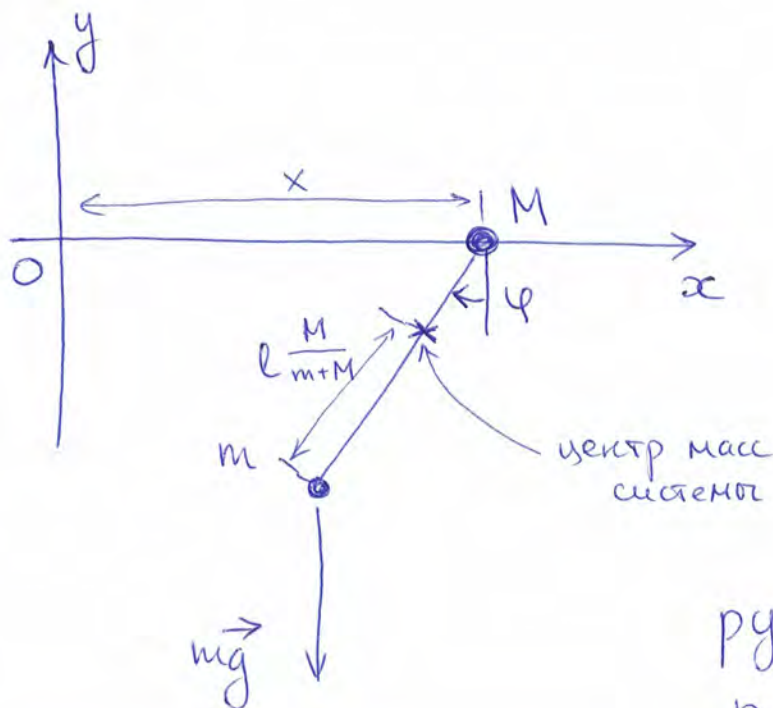 y
x
M
O
x
φ
l M/(m+M)
m
центр масс
системы
mg⃗
ру